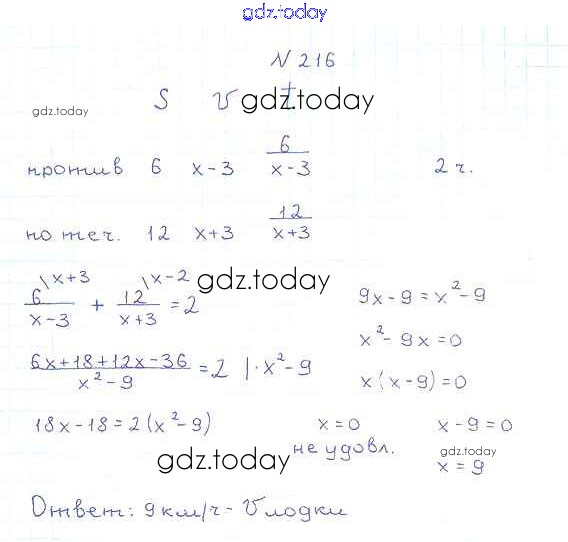 gdz.today
N 216
gdz.today
S v t gdz.today
против 6 x-3 6/(x-3) 2 ч.
по теч. 12 x+3 12/(x+3)
6/(x-3) \x+3 + 12/(x+3) \x-2 = 2 gdz.today
(6x+18+12x-36)/(x²-9) = 2 |·x²-9
18x-18=2(x²-9)
9x-9=x²-9
x²-9x=0
x(x-9)=0
x=0 x-9=0
не удовл. gdz.today
x=9
gdz.today
Ответ: 9 км/ч - v лодки